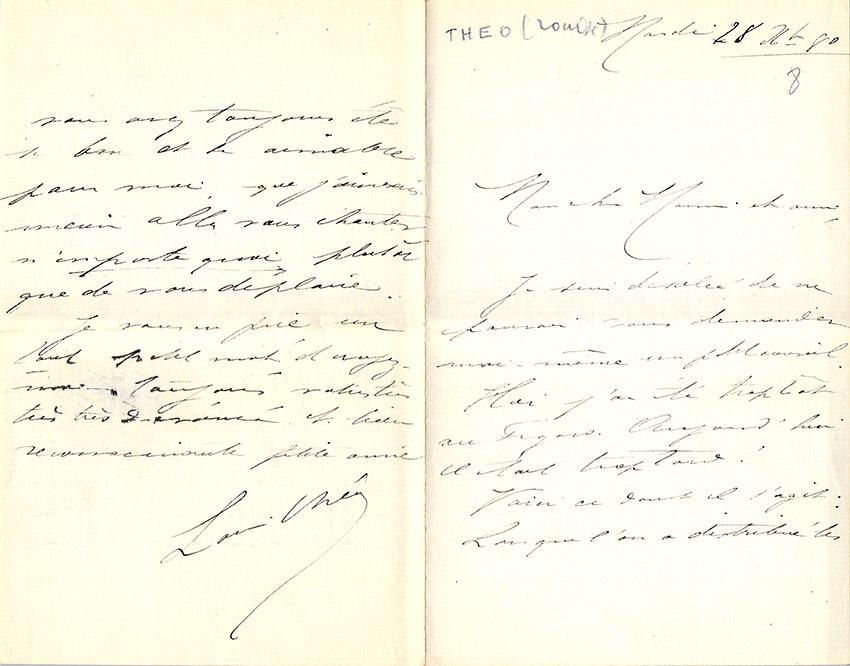 THEO (LOUISE) Mardi 28 Xbre 90
8
Mon cher Monsieur et ami,
Je suis désolée de ne
pouvoir vous demander
moi-même un petit conseil.
Hier j'ai été trop tôt
au Figaro. Aujourd'hui
il était trop tard!
Voici ce dont il s'agit:
Lorsque l'on a distribué les
vous avez toujours été
si bon et si aimable
pour moi, que j'aimerais
mieux aller vous chanter
n'importe quoi, plutôt
que de vous déplaire.
Je vous en prie un
tout petit mot et croyez-
moi toujours votre très
très très dévouée et bien
reconnaissante petite amie
Louise Théo